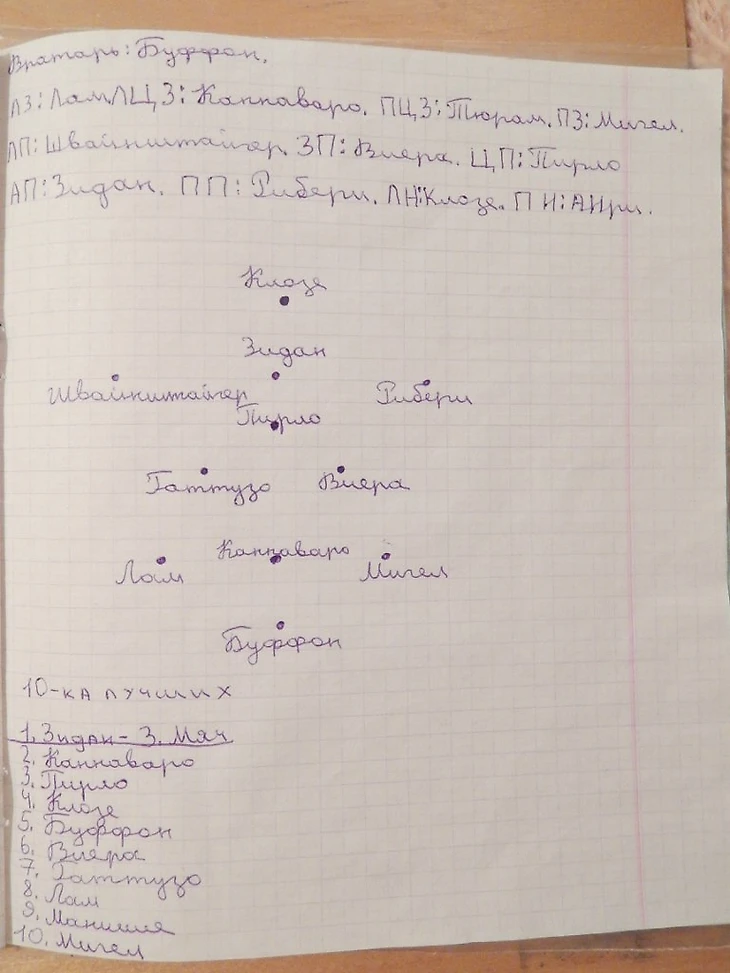 Вратарь: Буффон.
ЛЗ: Лам. ЛЦЗ: Каннаваро. ПЦЗ: Тюрам. ПЗ: Мигел.
ЛП: Швайнштайгер. ЗП: Виера. ЦП: Пирло
АП: Зидан. ПП: Рибери. ЛН: Клозе. ПН: АНри.
Клозе
Зидан
Швайнштайгер Рибери
Пирло
Гаттузо Виера
Каннаваро
Лам Мигел
Буффон
10-КА ЛУЧШИХ
1. Зидан - З. Мяч
2. Каннаваро
3. Пирло
4. Клозе
5. Буффон
6. Виера
7. Гаттузо
8. Лам
9. Манише
10. Мигел